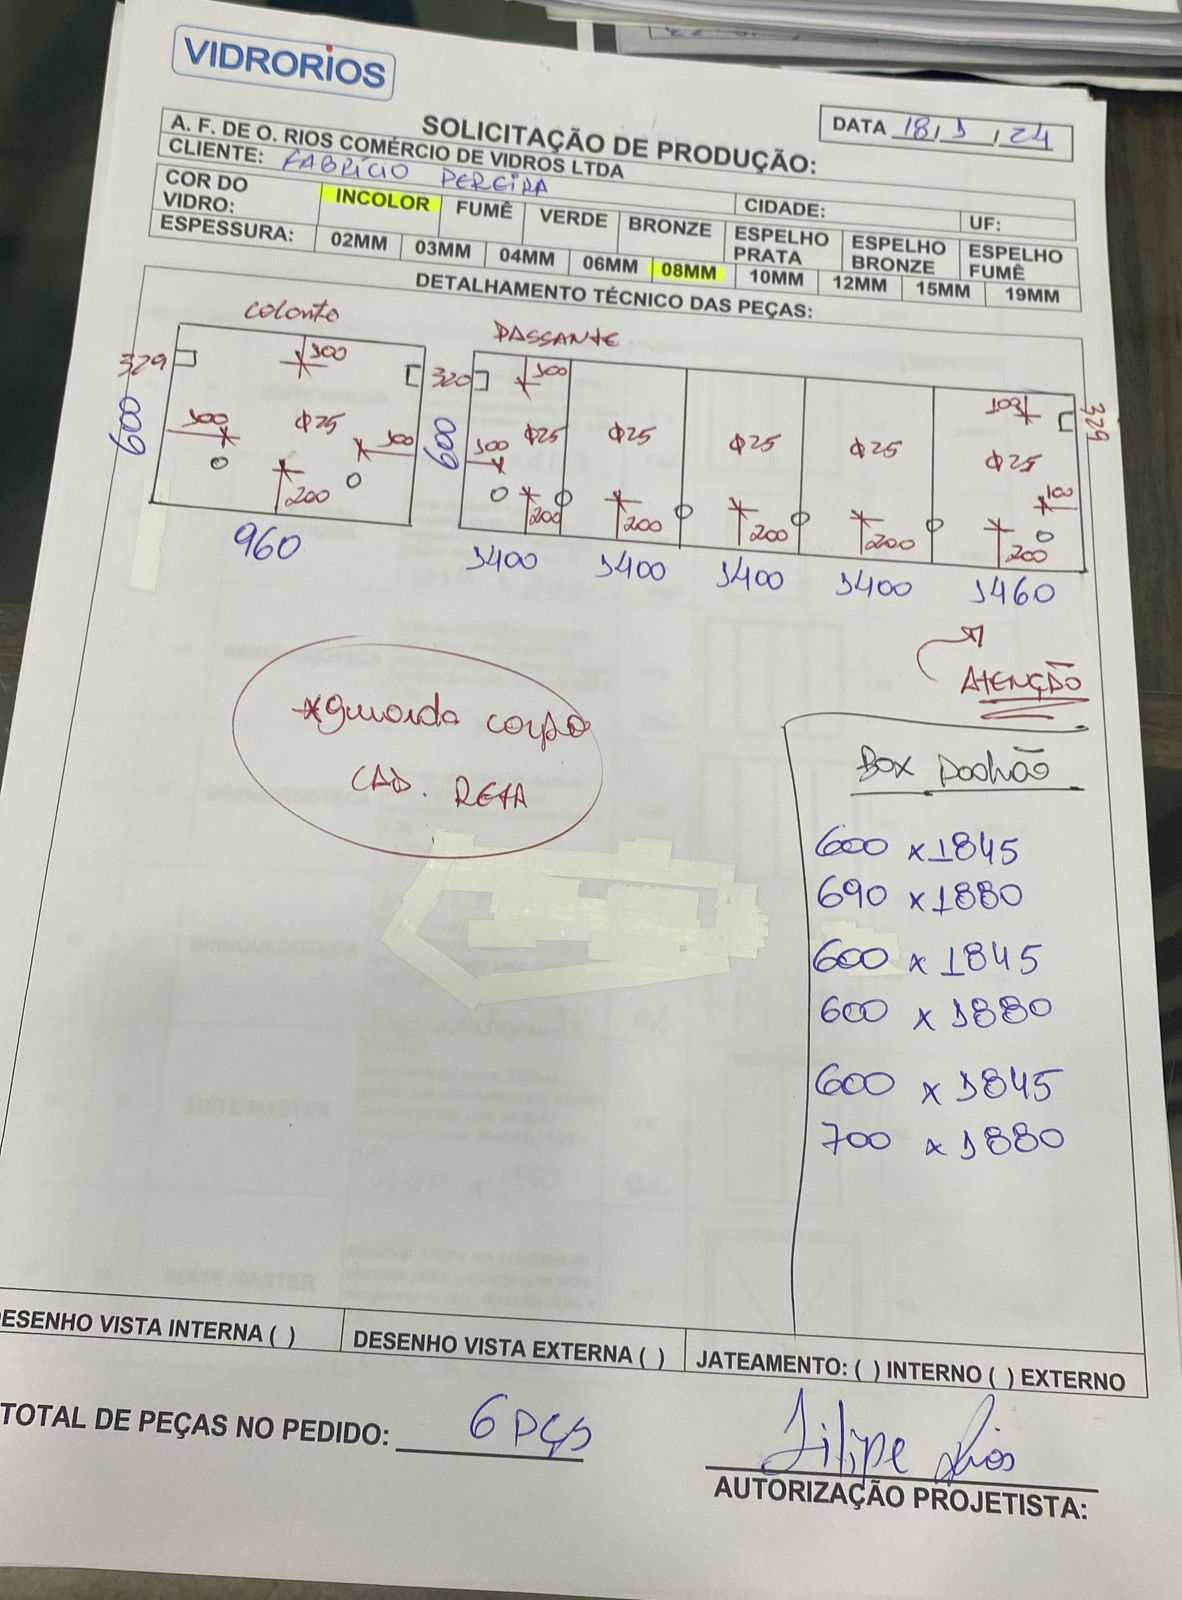 VIDRORIOS
SOLICITAÇÃO DE PRODUÇÃO:
DATA 18/1/24
A. F. DE O. RIOS COMÉRCIO DE VIDROS LTDA
CLIENTE: FABRÍCIO PEREIRA
CIDADE:
UF:
COR DO VIDRO:
INCOLOR
FUMÊ
VERDE
BRONZE
ESPELHO PRATA
ESPELHO BRONZE
ESPELHO FUMÊ
ESPESSURA:
02MM
03MM
04MM
06MM
08MM
10MM
12MM
15MM
19MM
DETALHAMENTO TÉCNICO DAS PEÇAS:
PASSANTE
329
100
320
100
103
329
600
100
Φ25
100
600
100
Φ25
Φ25
Φ25
Φ25
Φ25
100
200
200
200
200
200
200
960
1400
1400
1400
1400
1460
ATENÇÃO
*guarda corpo
CAD. RETA
Box Padrão
600 x 1845
690 x 1880
600 x 1845
600 x 1880
600 x 1845
700 x 1880
DESENHO VISTA INTERNA ( )
DESENHO VISTA EXTERNA ( )
JATEAMENTO: ( ) INTERNO ( ) EXTERNO
TOTAL DE PEÇAS NO PEDIDO: 6 PÇS
Filipe Rios
AUTORIZAÇÃO PROJETISTA: